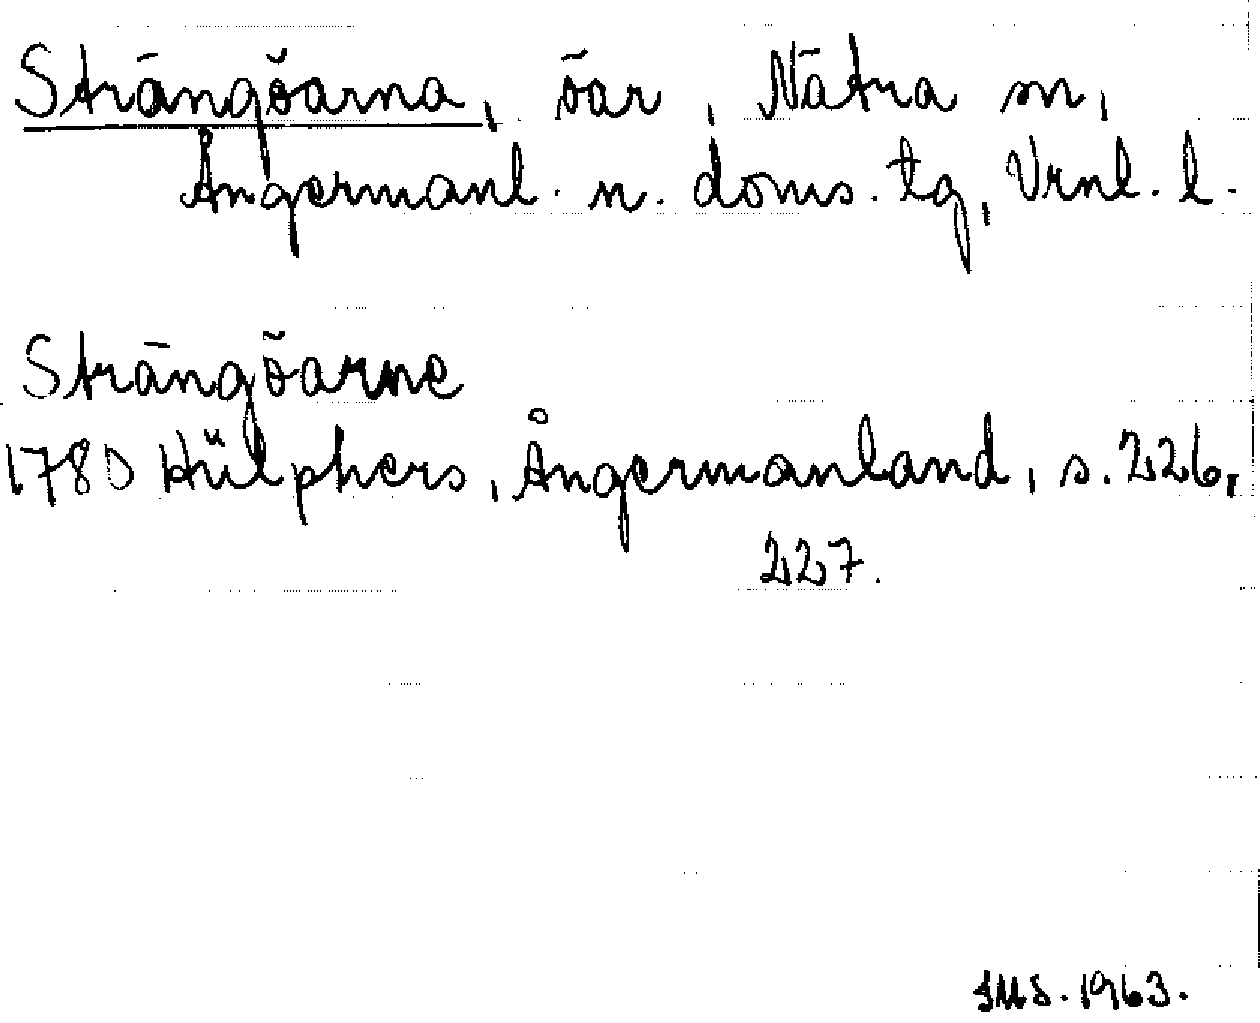 Strängöarna, öar, Nätra sn,
Ångermanl. n. doms. tg, Vrnl. l.
Strängöarne
1780 Hülphers, Ångermanland, s. 226,
227.
IMS. 1963.